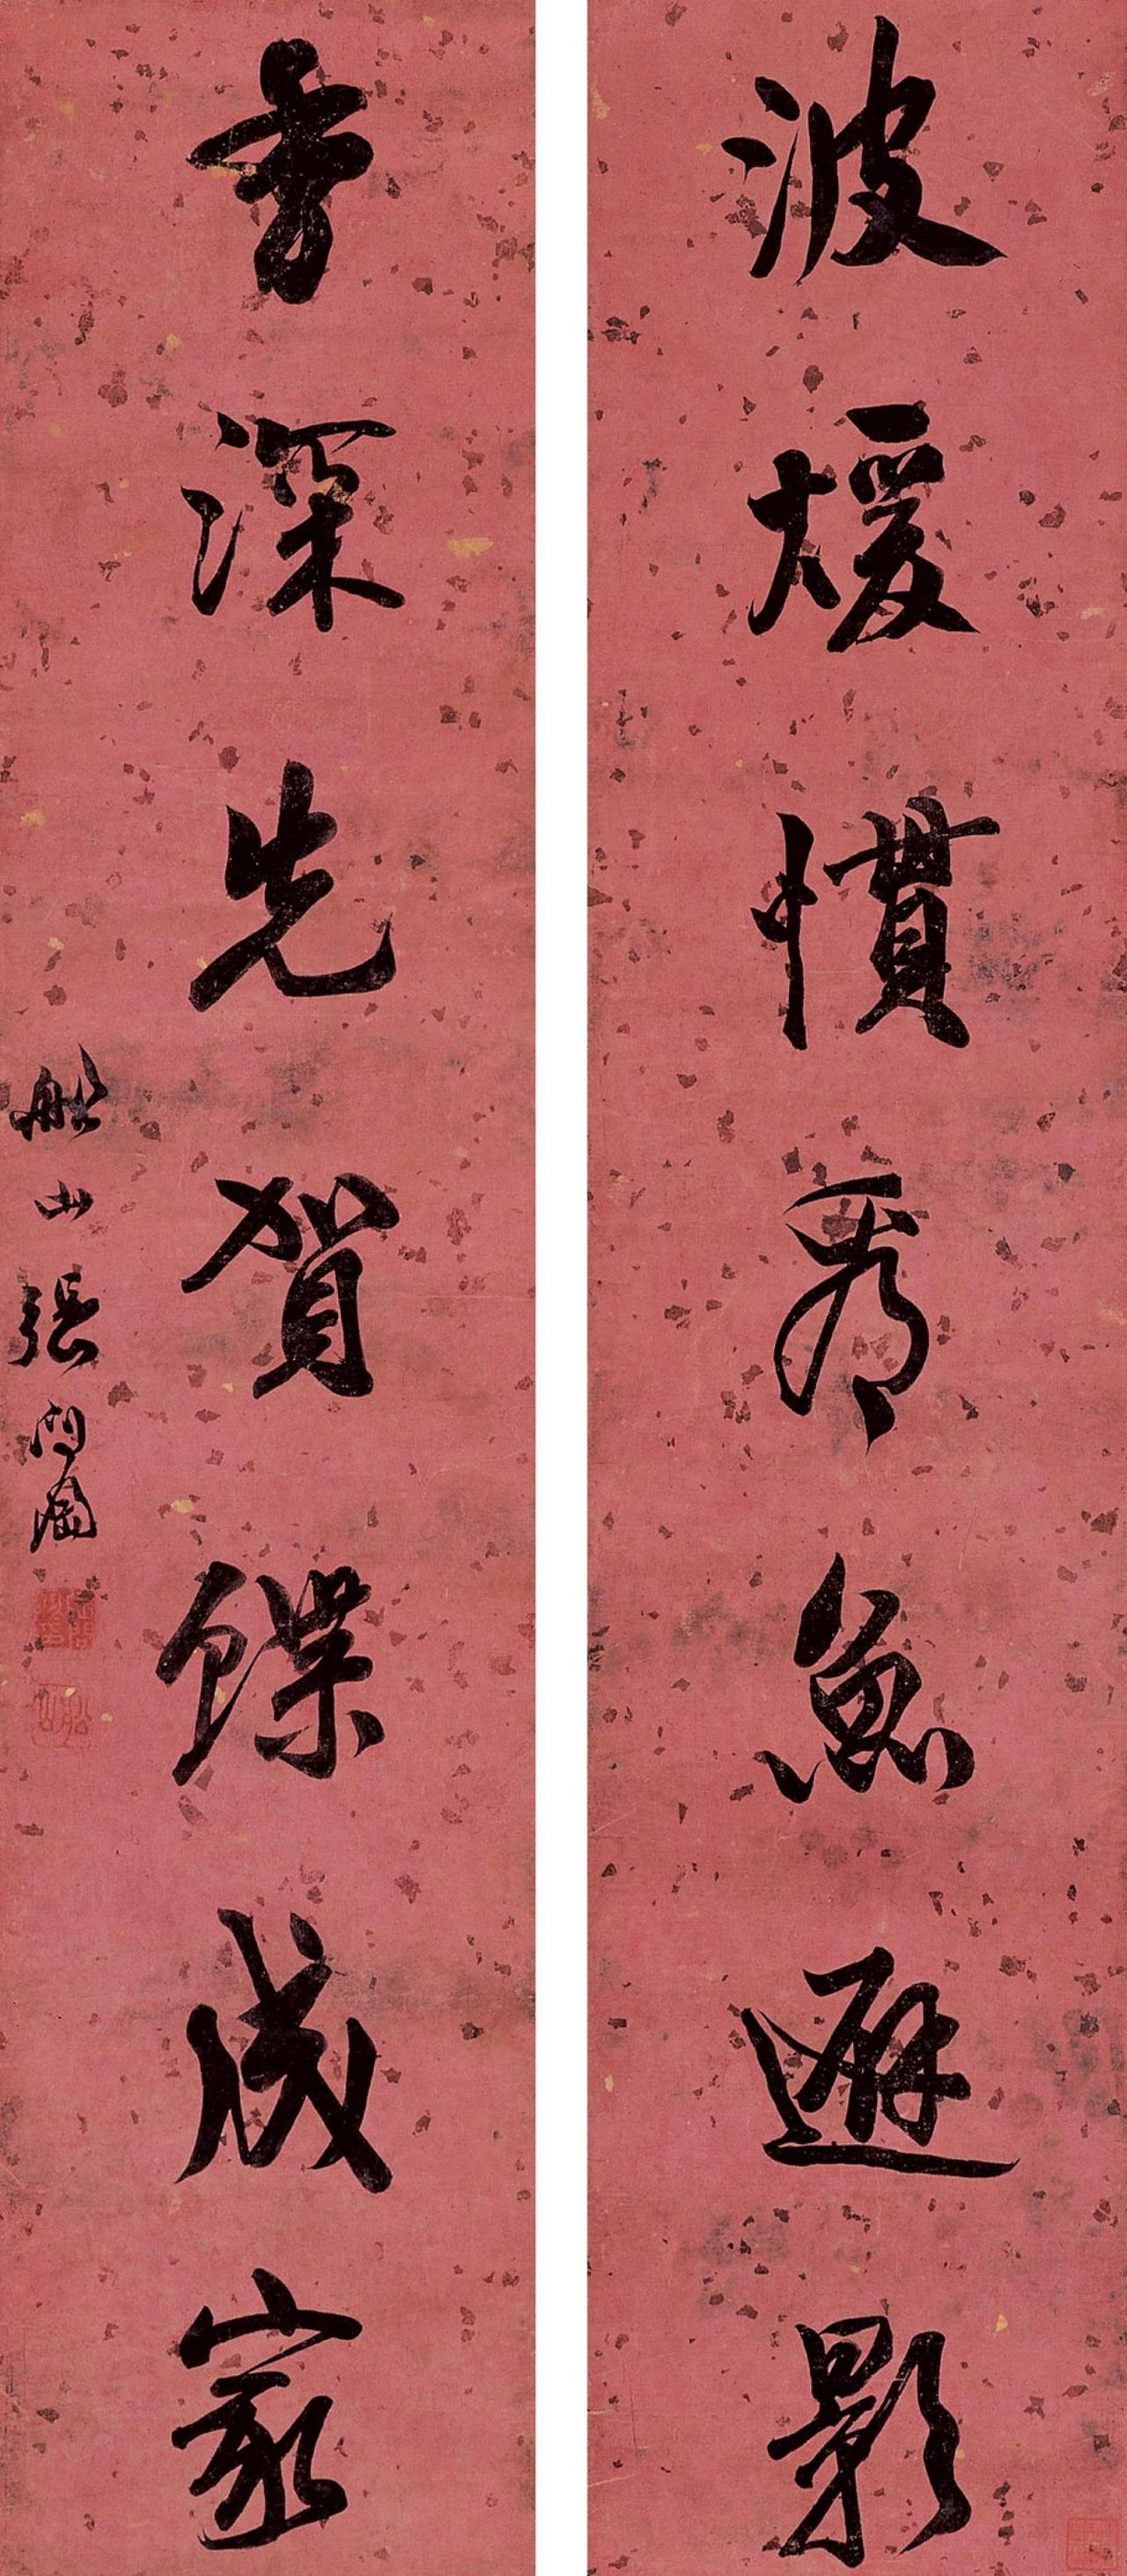 波煖慣看魚避影
香深先賀蝶成家
船山張問陶